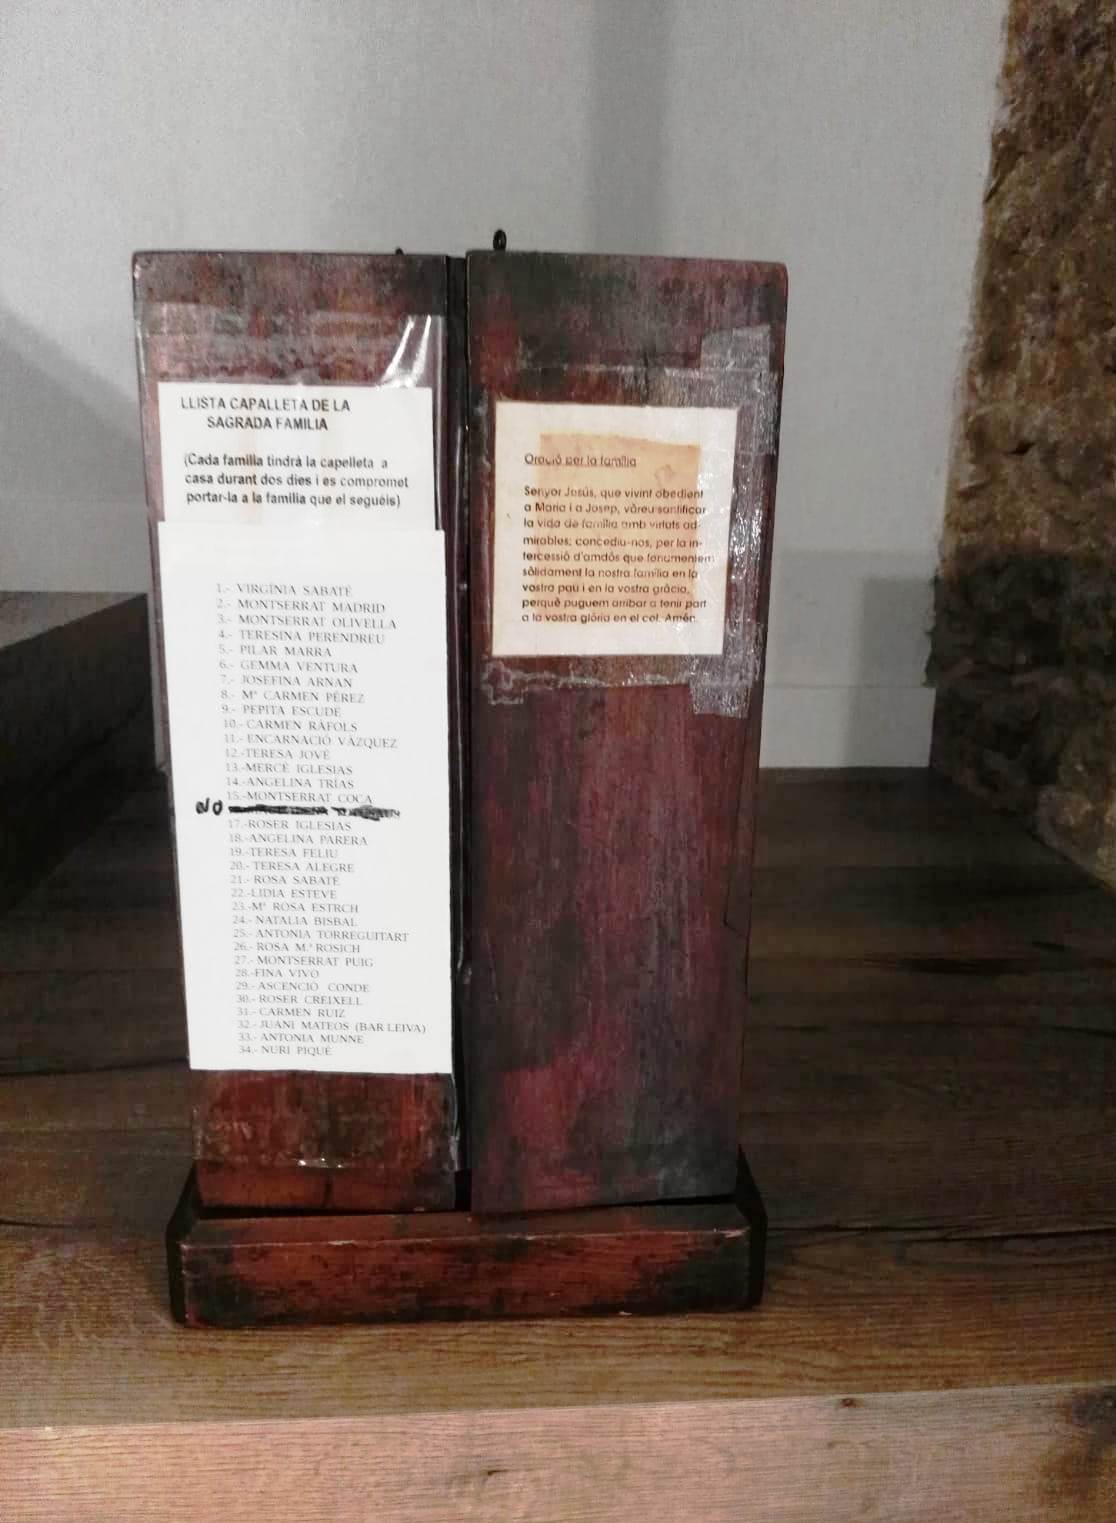 LLISTA CAPALLETA DE LA
SAGRADA FAMILIA
(Cada familia tindrà la capelleta a
casa durant dos dies i es compromet
portar-la a la familia que el seguéis)
1.- VIRGÍNIA SABATÉ
2.- MONTSERRAT MADRID
3.- MONTSERRAT OLIVELLA
4.- TERESINA PERENDREU
5.- PILAR MARRA
6.- GEMMA VENTURA
7.- JOSEFINA ARNAN
8.- Mª CARMEN PÉREZ
9.- PEPITA ESCUDE
10.- CARMEN RÀFOLS
11.- ENCARNACIÓ VÀZQUEZ
12.-TERESA JOVÉ
13.-MERCÈ IGLESIAS
14.-ANGELINA TRÍAS
15.-MONTSERRAT COCA
NO
17.-ROSER IGLESIAS
18.-ANGELINA PARERA
19.-TERESA FELIU
20.- TERESA ALEGRE
21.- ROSA SABATÉ
22.-LIDIA ESTEVE
23.-Mª ROSA ESTRCH
24.- NATALIA BISBAL
25.- ANTONIA TORREGUITART
26.- ROSA M.ª ROSICH
27.- MONTSERRAT PUIG
28.-FINA VIVO
29.- ASCENCIÓ CONDE
30.- ROSER CREIXELL
31.- CARMEN RUIZ
32.- JUANI MATEOS (BAR LEIVA)
33.- ANTONIA MUNNE
34.- NURI PIQUÉ
Oració per la família
Senyor Jesús, que vivint obedient
a Maria i a Josep, vàreu santificar
la vida de família amb virtuts ad-
mirables; concediu-nos, per la in-
tercessió d'amdós que fonamentem
sòlidament la nostra família en la
vostra pau i en la vostra gràcia,
perquè puguem arribar a tenir part
a la vostra glòria en el cel. Amén.